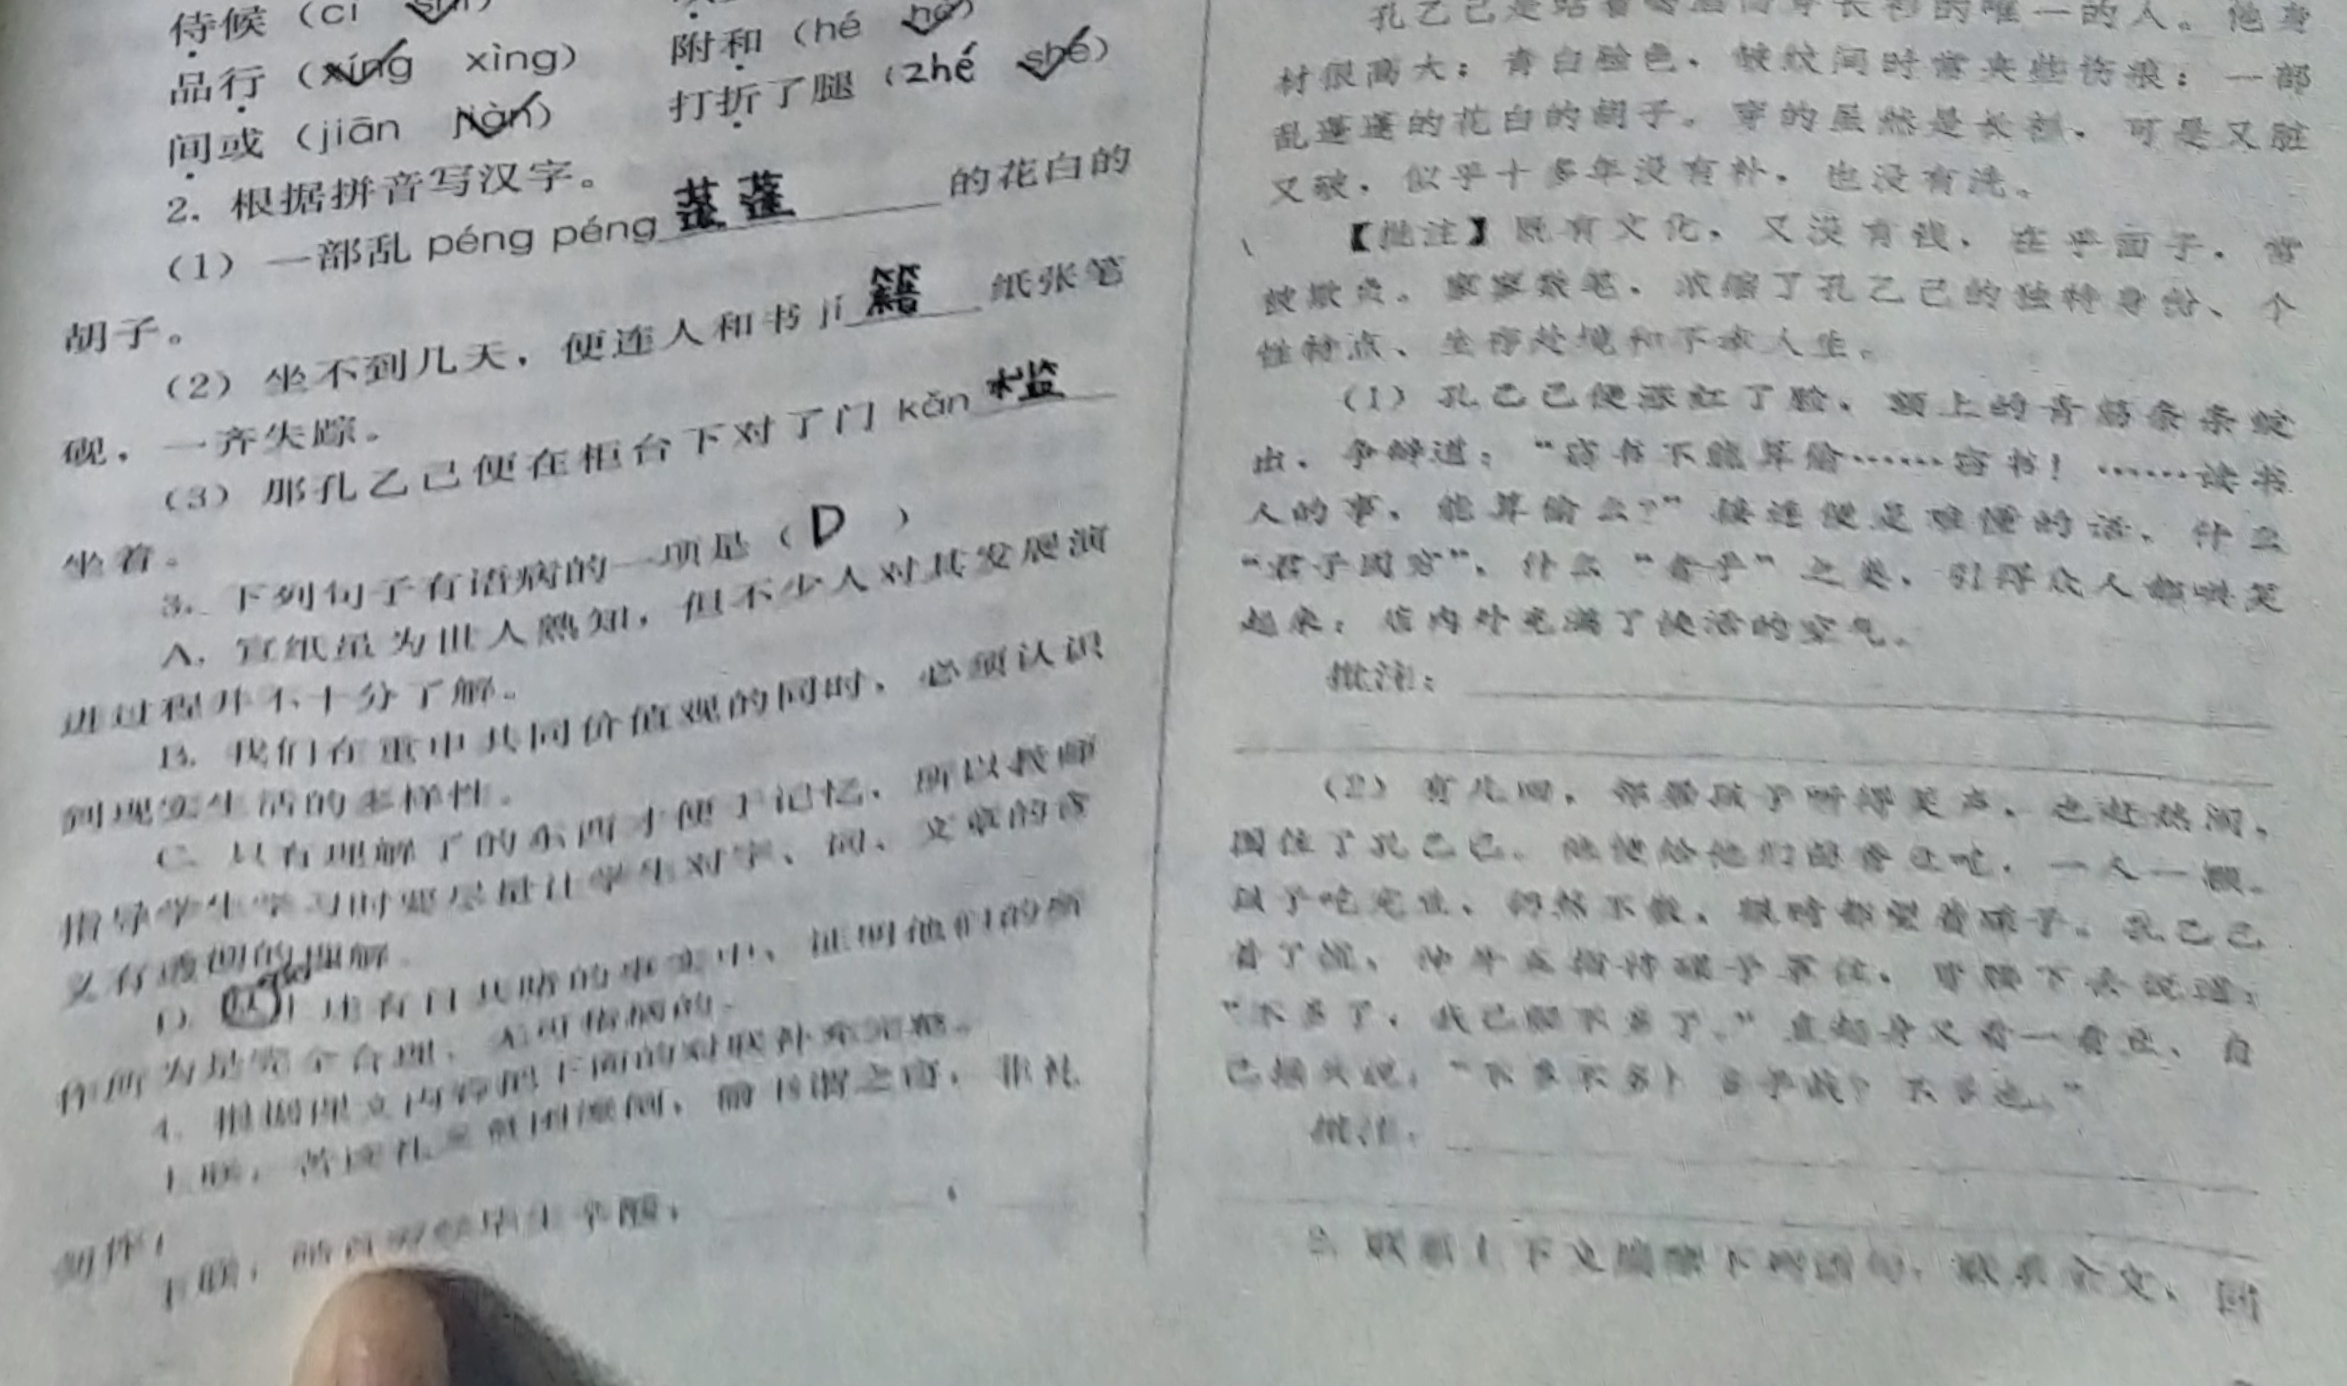 侍候（cì shì）
品行（xíng xìng） 附和（hé hè）
间或（jiān jiàn） 打折了腿（zhé shé）
2. 根据拼音写汉字。
（1）一部乱 péng péng 蓬蓬 的花白的
胡子。
（2）坐不到几天，便连人和书 jí 籍 纸张笔
砚，一齐失踪。
（3）那孔乙己便在柜台下对了门 kǎn 槛
坐着。
3. 下列句子有语病的一项是（ D ）
A. 宣纸虽为世人熟知，但不少人对其发展演
进过程并不十分了解。
B. 我们在重申共同价值观的同时，必须认识
到现实生活的多样性。
C. 只有理解了的东西才便于记忆，所以教师
指导学生学习时要尽量让学生对字、词、文章的含
义有透彻的理解。
D. 上述有目共睹的事实中，证明他们的所
作所为是完全合理、无可指摘的。
4. 根据课文内容把下面的对联补充完整。
上联：苦读礼 困潦倒，偷书谓之窃，非礼
勿怀；
下联： 半生辛酸，
孔乙己是站着喝酒而穿长衫的唯一的人。他身
材很高大；青白脸色，皱纹间时常夹些伤痕；一部
乱蓬蓬的花白的胡子。穿的虽然是长衫，可是又脏
又破，似乎十多年没有补，也没有洗。
【批注】既有文化，又没有钱，在乎面子，常
被欺负。寥寥数笔，浓缩了孔乙己的独特身份、个
性特点、生存处境和不幸人生。
（1）孔乙己便涨红了脸，额上的青筋条条绽
出，争辩道：“窃书不能算偷……窃书！……读书
人的事，能算偷么？”接连便是难懂的话，什么
“君子固穷”，什么“者乎”之类，引得众人都哄笑
起来：店内外充满了快活的空气。
批注：
（2）有几回，邻居孩子听得笑声，也赶热闹，
围住了孔乙己。他便给他们茴香豆吃，一人一颗。
孩子吃完豆，仍然不散，眼睛都望着碟子。孔乙己
着了慌，伸开五指将碟子罩住，弯腰下去说道：
“不多了，我已经不多了。”直起身又看一看豆，自
己摇头说：“不多不多！多乎哉？不多也。”
批注：
2. 联系上下文 下列语句，联系全文，回